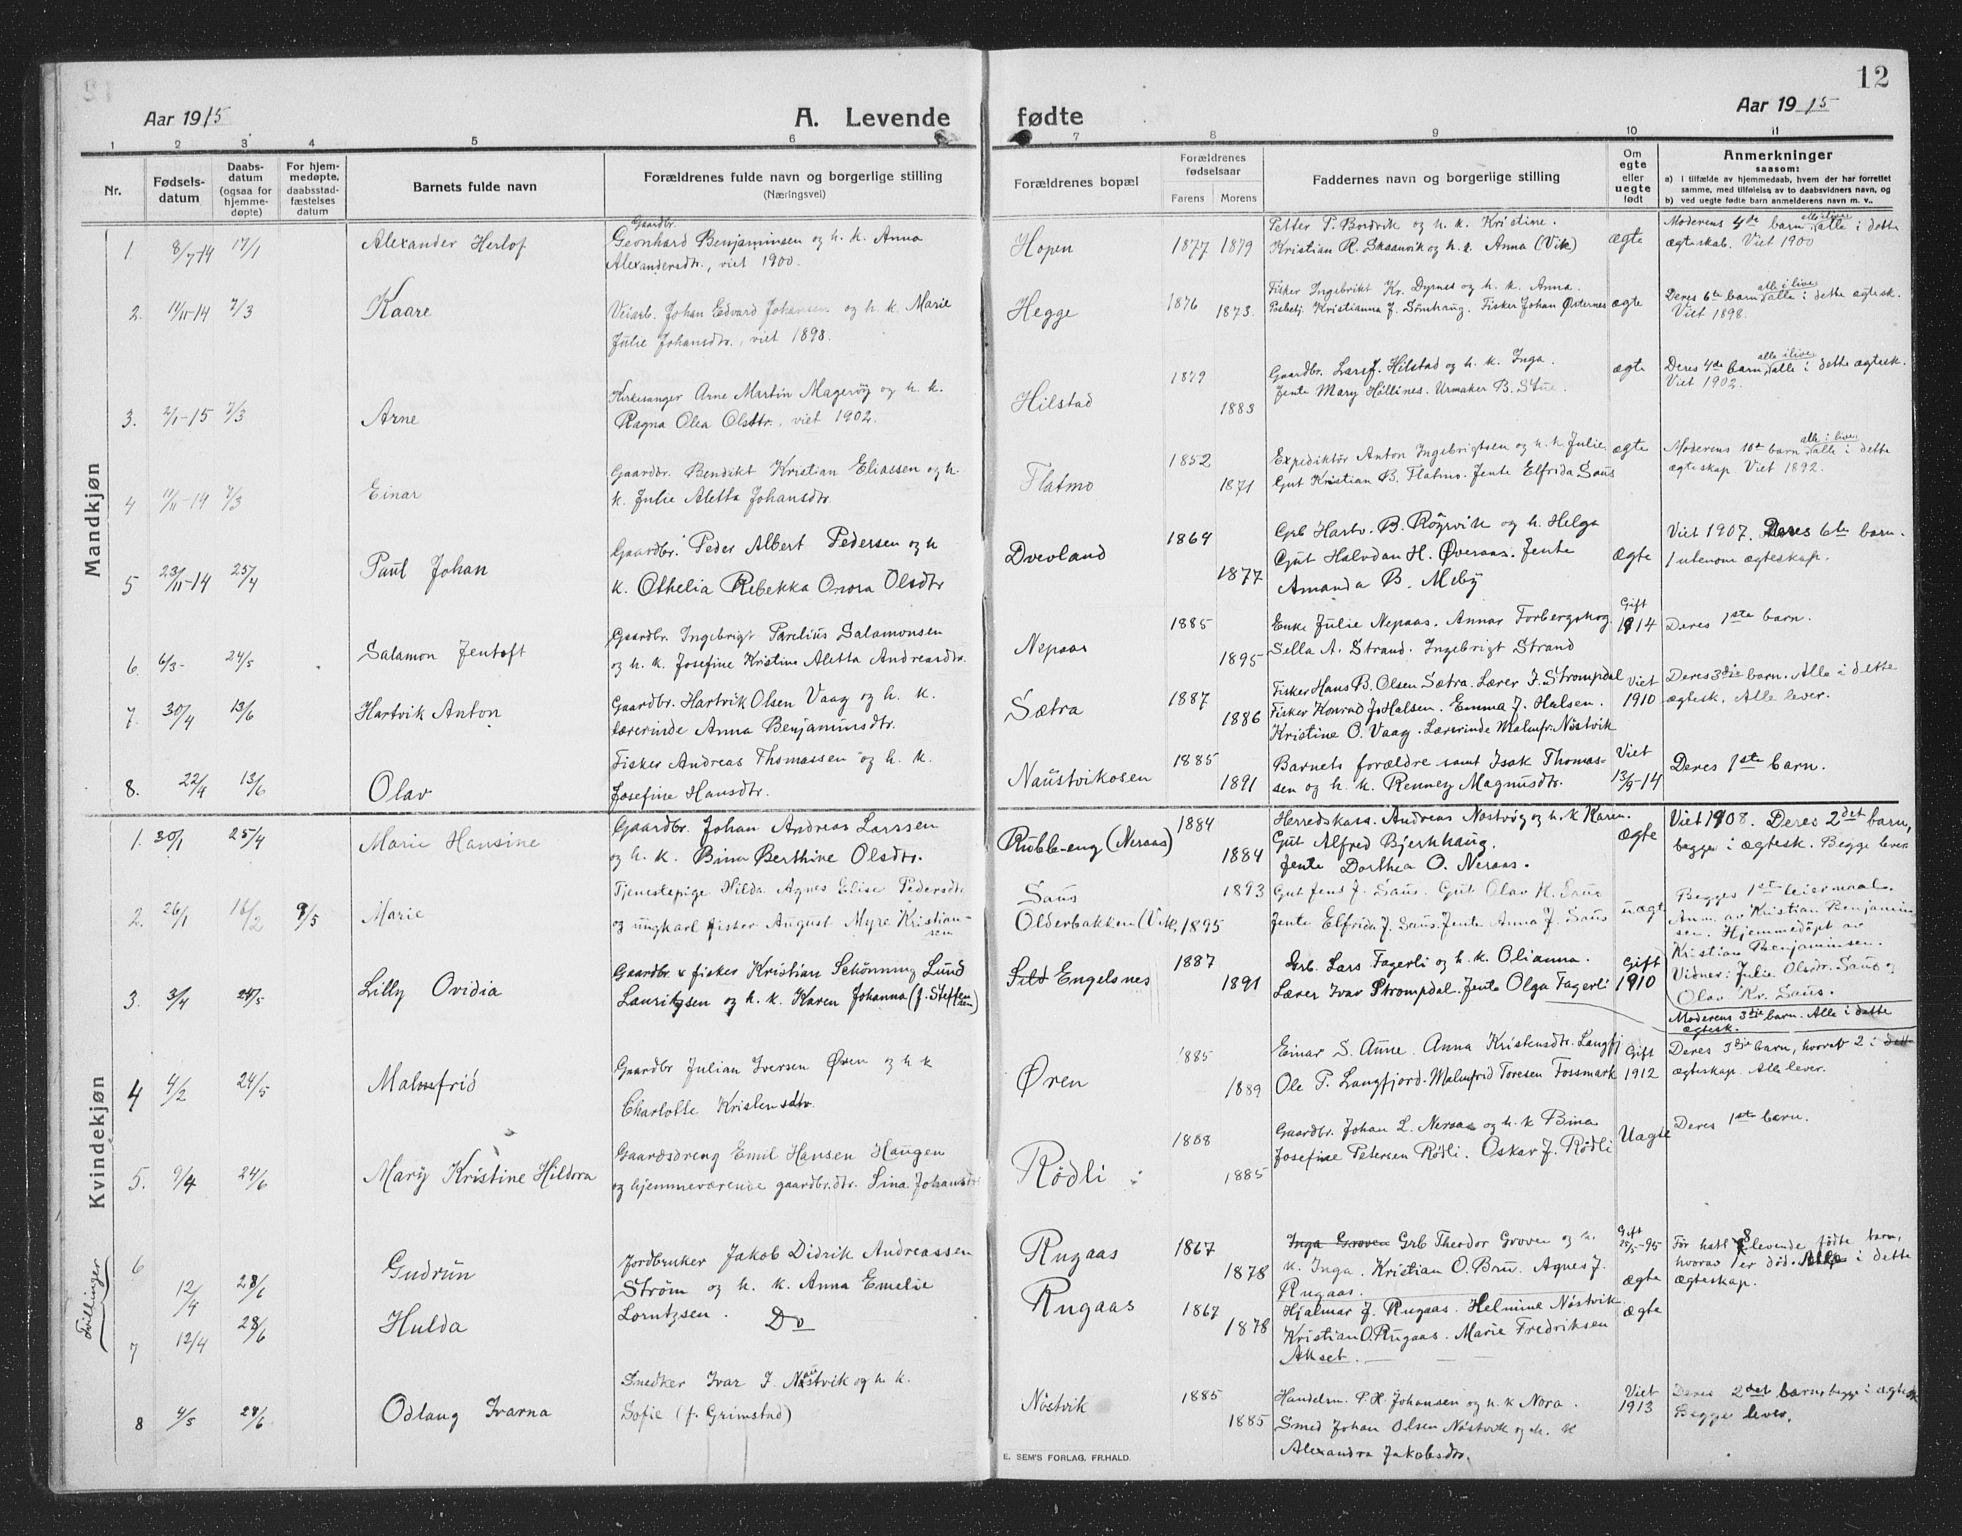 12
Aar 1915 A. Levende fødte Aar 1915
1 2 3 4 5 6 7 8 9 10 11
Nr. Fødsels-datum Daabs-datum (ogsaa for hjemme-døpte) For hjem-medøpte, daabsstad-fæstelses datum Barnets fulde navn Forældrenes fulde navn og borgerlige stilling (Næringsvei) Forældrenes bopæl Forældrenes fødselsaar Farens Morens Faddernes navn og borgerlige stilling Om egte eller uegte født Anmerkninger saasom:
a) I tilfælde av hjemmedaab, hvem der har forrettet samme, med tilføielse av to daabsvidners navn, og
b) ved uegte fødte barn anmelderens navn m. v..
Mandkjøn
1 8/7-14 17/1 Alexander Herlof
Gaardbr.
Geonhard Benjaminsen og h. k. Anna
Alexandersdtr., viet 1900.
Hopen 1877 1879
Petter P. Bordvik og h. k. Kristine.
Kristian R. Skaanvik og h. k. Anna (Vik)
ægte
Moderens 4de barn, alle i live, alle i dette
ægteskab. Viet 1900
2. 11/11-14 7/3 Kaare
Veiarb. Johan Edvard Johansen og h. k. Marie
Julie Johansdtr., viet 1898.
Hegge 1876 1873.
Fisker Ingebrikt Kr. Dyrnes og h. k. Anna.
Kristianna J. Sønhaug. Fisker Johan Østernes
ægte
Deres 6te barn, alle i live, alle i dette ægtesk.
Viet 1898.
3. 2/1-15 7/3 Arne
Kirkesanger Arne Martin Magerøy og h. k.
Ragna Olea Olsdtr., viet 1902.
Hilstad 1879 1883
Gaardbr. Hilstad og h. k. Inga.
Jente Mary Hollines. Urmaker B. Stue
ægte
Deres 4de barn, alle i live, alle i dette ægtesk.
Viet 1902.
4 11/11-14 7/3 Einar
Gaardbr. Bendikt Kristian Eliassen og h.
k. Julie Aletta Johansdtr
Flatmo 1852 1871
Expeditør Anton Ingebrigtsen og h. k. Julie
Gut Kristian B. Flatmo. Jente Elfrida Saus
ægte
Moderens 10de barn, alle i live, alle i dette
ægteskap Viet 1892.
5 23/11-14 25/4 Paul Johan
Gaardbr. Peder Albert Pedersen og h
k. Othelia Rebekka Onora Olsdtr
Drevland 1864 1877
Grb Hartv. B. Røyrvik og h. Helga
Gut Halvdan H. Øveraas. Jente
Amanda B. Meby
ægte
Viet 1907. Deres 6te barn.
1 utenom ægteskap.
6. 6/3- 24/5 Salamon Jentoft
Gaardbr. Ingebrigt Parelius Salamonsen
og h. k. Josefine Kristine Aletta Andreasdtr.
Nepaas 1885 1895
Enke Julie Nepaas. Annar Forbergskog
Sella A. Strand. Ingebrigt Strand
Gift 1914
Deres 1ste barn.
7. 30/4 13/6 Hartvik Anton
Gaardbr. Hartvik Olsen Vaag og h. k.
Lærerinde Anna Benjaminsdtr.
Sætra 1887 1886
Fisker Hans B. Olsen Sætra. Lærer J. Strompdal
Fisker Konrad J. Halsen. Emma J. Halsen.
Kristine O. Vaag. Lærerinde Malmfr. Nøstvik
Viet 1910
Deres 3die barn. Alle i dette
ægtesk. Alle lever.
8. 22/4 13/6 Olav
Fisker Andreas Thomassen og h. k.
Josefine Hansdtr.
Naustvikosen 1885 1891
Barnets forældre samt Isak Thomas-
sen og h. k. Renney Magnusdtr.
Viet 13/9-14
Deres 1ste barn.
Kvindekjøn
1. 30/1 25/4 Marie Hansine
Gaardbr. Johan Andreas Larssen
og h. k. Bina Berthine Olsdtr.
Rubbleeng (Neraas) 1884 1884
Herredskass. Andreas Nøstvog og h. k Karen.
Gut Alfred Bjerkhaug.
Jente Dorthea O. Neraas.
ægte
Viet 1908. Deres 2det barn,
begge i ægtesk. Begge lever
2. 26/1 16/2 9/5 Marie
Tjenestepige Hilda Agnes Elise Pedersdtr
og ungkarl fisker August Myre Kristian-
sen
Saus
Olderbakken (Vik, 1893 1895
Gut Jens J. Saus. Gut Olav K. Saus
Jente Elfrida J. Saus. Jente Anna J. Saus
uægte
Begges 1ste leiermaal.
Anm. av Kristian Benjamin-
sen. Hjemmedøpt av
Kristian Benjaminsen.
Vidner: Julie Olsdtr. Saus og
Olav Kr. Saus.
3. 3/4 24/5 Lilly Ovidia
Gaardbr & fisker Kristian Schönning Lund
Lauritzsen og h. k. Karen Johanna (f. Steffen
sen)
Engelsnes 1887 1891
Grb. Lars Fagerli og h. k. Olianna.
Lærer Ivar Strompdal. Jente Olga Fagerli
Gift 1910
Moderens 3die barn. Alle i dette
ægtesk.
4 4/2 24/5 Malmfrid
Gaardbr Julian Iversen Øren og h k
Charlotte Kristensdtr.
Øren 1885 1889
Einar S. Aune. Anna Kristensdtr. Langfj.
Ole P. Langfjord. Malmfrid Toresen Fossmark
Gift 1912
Deres 3die barn, hvorav 2 i dette
ægteskap. Alle lever.
5. 9/4 24/6 Mary Kristine Hildora
Gaardsdreng Emil Hansen Haugen
og hjemmeværende gaardbr.dtr. Lina Johansdtr
Rødli 1888 1885
Gaardbr. Johan L. Neraas og h. k Bina
Josefine Petersen Rødli. Oskar J. Rødli
Uægte
Deres 1ste barn.
Tvillinger
6 12/4 28/6 Gudrun
Jordbruker Jakob Didrik Andreassen
Strøm og h. k. Anna Emelie
Lorntzsen.
Rugaas 1867 1878
Inga Groven Grb Theodor Groven og h.
k. Inga. Kristian O. Bru. Agnes J.
Rugaas.
Gift 25/5-95 ægte
Før hatt 8 levende fødte barn,
hvorav 1 er død. Alle i dette
ægteskap.
7 12/4 28/6 Hulda
Do
Rugaas 1867 1878
Hjalmar J. Rugaas. Helmine Nøstvik
Kristian O. Rugaas. Marie Fredriksen
Akset.
ægte
8 4/5 28/6 Odlaug Ivarna
Smedker Ivar J. Nøstvik og h. k.
Sofie (f. Grimstad)
Nøstvik 1885 1885
Handelm. P. H. Johansen og h. k Nora.
Smed Johan Olsen Nøstvik og h. k
Alexandra Jakobsdtr.
Viet 1913
Deres 2det barn, begge i ægtesk
Begge lever.
E. SEM'S FORLAG, FR.HALD.